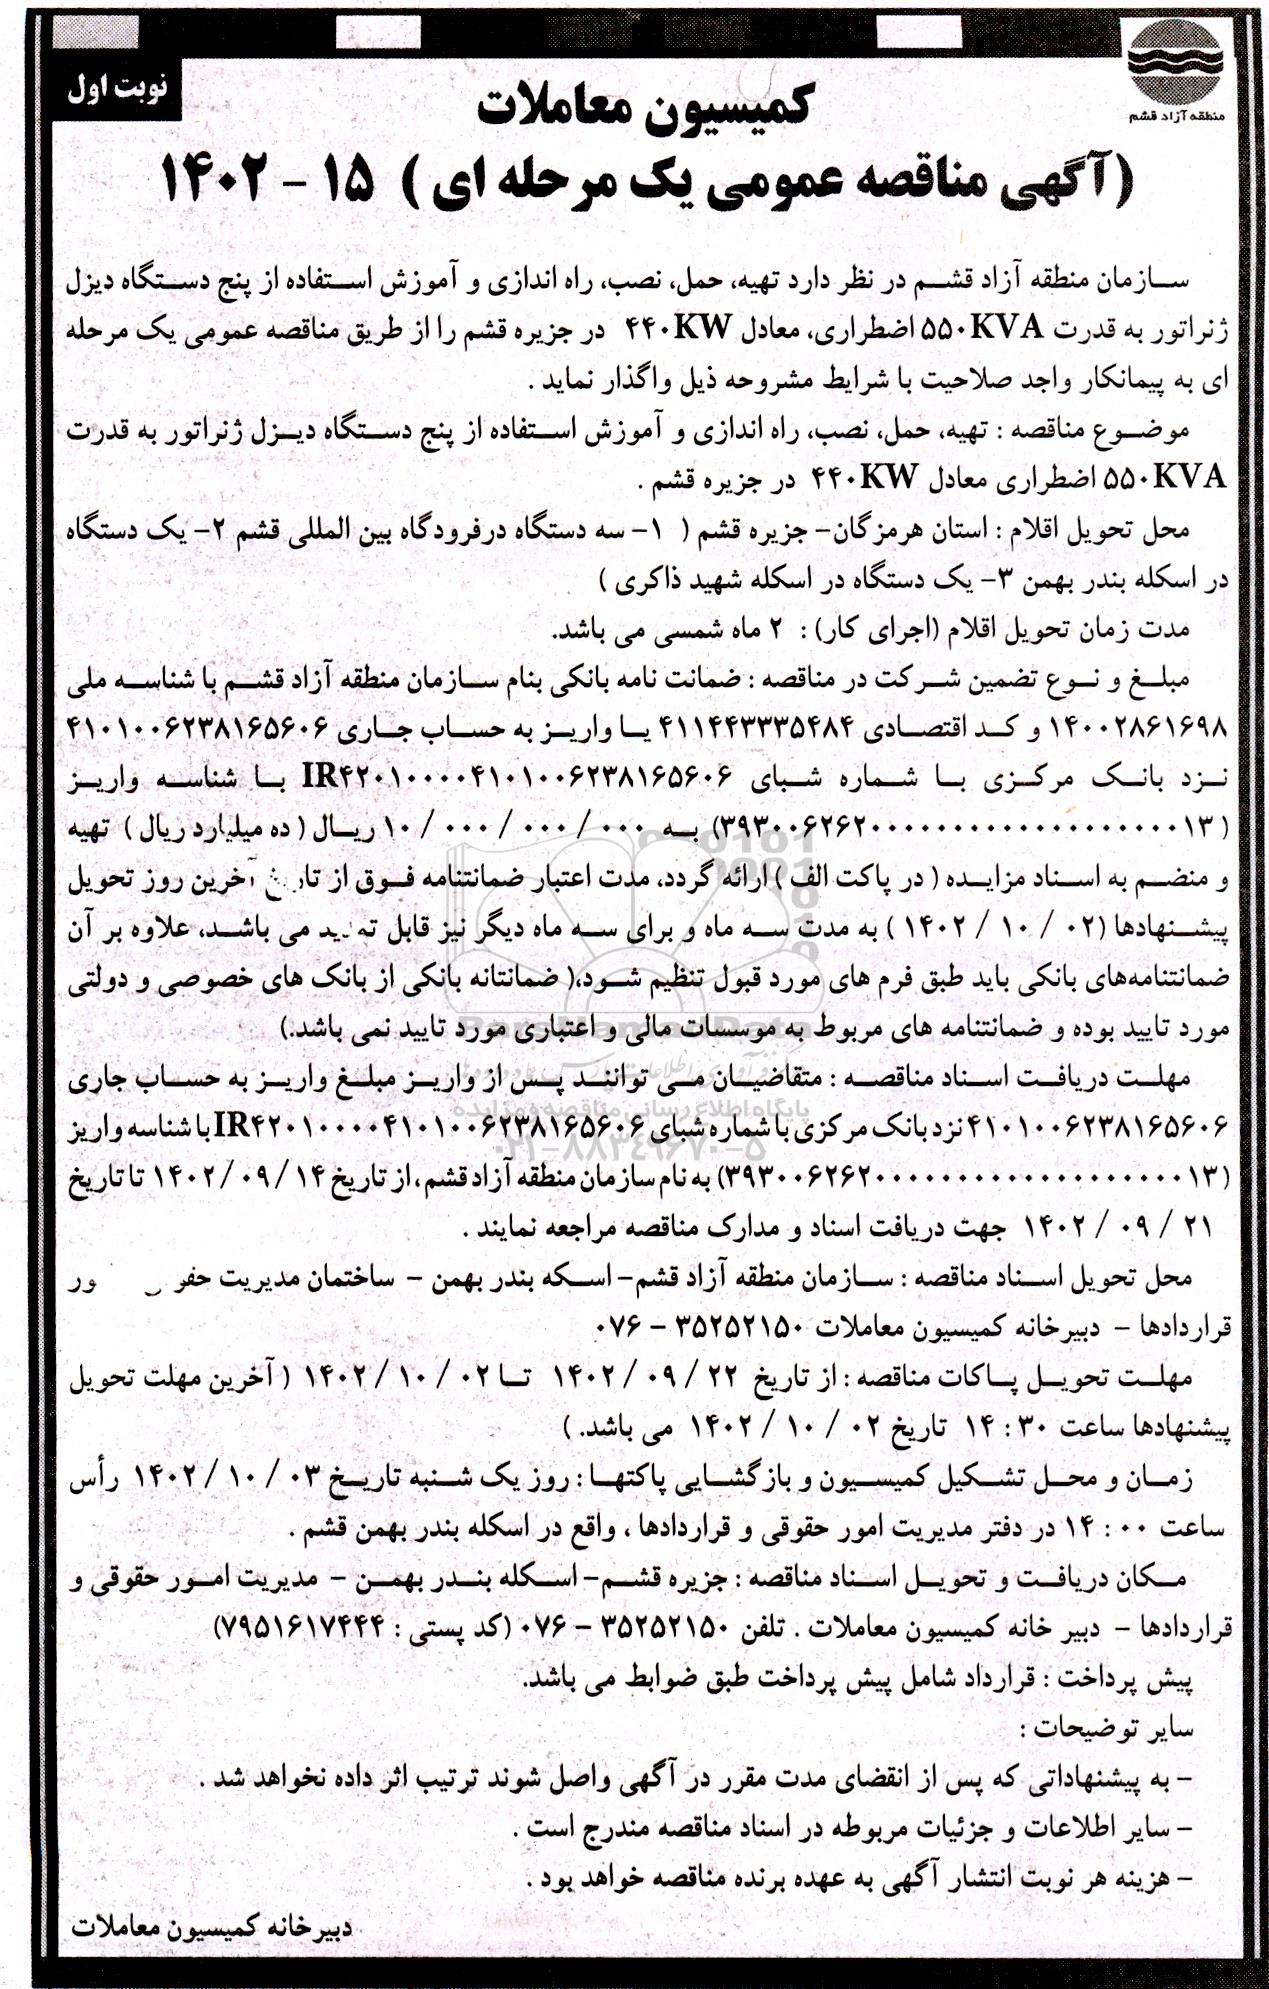 منطقه آزاد قشم
نوبت اول
کمیسیون معاملات
(آگهی مناقصه عمومی یک مرحله ای ) ۱۵ - ۱۴۰۲
سازمان منطقه آزاد قشم در نظر دارد تهیه، حمل، نصب، راه اندازی و آموزش استفاده از پنج دستگاه دیزل
ژنراتور به قدرت ۵۵۰KVA اضطراری، معادل ۴۴۰KW در جزیره قشم را از طریق مناقصه عمومی یک مرحله
ای به پیمانکار واجد صلاحیت با شرایط مشروحه ذیل واگذار نماید .
موضوع مناقصه : تهیه، حمل، نصب، راه اندازی و آموزش استفاده از پنج دستگاه دیزل ژنراتور به قدرت
۵۵۰KVA اضطراری معادل ۴۴۰KW در جزیره قشم .
محل تحویل اقلام : استان هرمزگان- جزیره قشم ( ۱- سه دستگاه درفرودگاه بین المللی قشم ۲- یک دستگاه
در اسکله بندر بهمن ۳- یک دستگاه در اسکله شهید ذاکری )
مدت زمان تحویل اقلام (اجرای کار) : ۲ ماه شمسی می باشد.
مبلغ و نوع تضمین شرکت در مناقصه : ضمانت نامه بانکی بنام سازمان منطقه آزاد قشم با شناسه ملی
۱۴۰۰۲۸۶۱۶۹۸ و کد اقتصادی ۴۱۱۴۴۳۳۳۵۴۸۴ یا واریز به حساب جاری ۴۱۰۱۰۰۶۲۳۸۱۶۵۶۰۶
نزد بانک مرکزی با شماره شبای IR۴۲۰۱۰۰۰۰۴۱۰۱۰۰۶۲۳۸۱۶۵۶۰۶ با شناسه واریز
(۳۹۳۰۰۶۲۶۲۰۰۰۰۰۰۰۰۰۰۰۰۰۰۰۰۰۰۰۱۳) به ۱۰/۰۰۰/۰۰۰/۰۰۰ ریال ( ده میلیارد ریال ) تهیه
و منضم به اسناد مزایده ( در پاکت الف ) ارائه گردد، مدت اعتبار ضمانتنامه فوق از تاریخ آخرین روز تحویل
پیشنهادها (۰۲ / ۱۰ / ۱۴۰۲ ) به مدت سه ماه و برای سه ماه دیگر نیز قابل تمدید می باشد، علاوه بر آن
ضمانتنامه‌های بانکی باید طبق فرم های مورد قبول تنظیم شود،( ضمانتانه بانکی از بانک های خصوصی و دولتی
مورد تایید بوده و ضمانتنامه های مربوط به موسسات مالی و اعتباری مورد تایید نمی باشد.)
مهلت دریافت اسناد مناقصه : متقاضیان می توانند پس از واریز مبلغ واریز به حساب جاری
۴۱۰۱۰۰۶۲۳۸۱۶۵۶۰۶ نزد بانک مرکزی با شماره شبای IR۴۲۰۱۰۰۰۰۴۱۰۱۰۰۶۲۳۸۱۶۵۶۰۶ با شناسه واریز
(۳۹۳۰۰۶۲۶۲۰۰۰۰۰۰۰۰۰۰۰۰۰۰۰۰۰۰۰۱۳) به نام سازمان منطقه آزاد قشم ، از تاریخ ۱۴ / ۰۹ / ۱۴۰۲ تا تاریخ
۲۱ / ۰۹ / ۱۴۰۲ جهت دریافت اسناد و مدارک مناقصه مراجعه نمایند .
محل تحویل اسناد مناقصه : سازمان منطقه آزاد قشم- اسکه بندر بهمن - ساختمان مدیریت
قراردادها - دبیرخانه کمیسیون معاملات ۳۵۲۵۲۱۵۰ - ۰۷۶
مهلت تحویل پاکات مناقصه : از تاریخ ۲۲ / ۰۹ / ۱۴۰۲ تا ۰۲ / ۱۰ / ۱۴۰۲ ( آخرین مهلت تحویل
پیشنهادها ساعت ۳۰ : ۱۴ تاریخ ۰۲ / ۱۰ / ۱۴۰۲ می باشد. )
زمان و محل تشکیل کمیسیون و بازگشایی پاکتها : روز یک شنبه تاریخ ۰۳ / ۱۰ / ۱۴۰۲ رأس
ساعت ۰۰ : ۱۴ در دفتر مدیریت امور حقوقی و قراردادها ، واقع در اسکله بندر بهمن قشم .
مکان دریافت و تحویل اسناد مناقصه : جزیره قشم- اسکله بندر بهمن - مدیریت امور حقوقی و
قراردادها - دبیر خانه کمیسیون معاملات . تلفن ۳۵۲۵۲۱۵۰ - ۰۷۶ (کد پستی : ۷۹۵۱۶۱۷۴۴۴)
پیش پرداخت : قرارداد شامل پیش پرداخت طبق ضوابط می باشد.
سایر توضیحات :
- به پیشنهاداتی که پس از انقضای مدت مقرر در آگهی واصل شوند ترتیب اثر داده نخواهد شد .
- سایر اطلاعات و جزئیات مربوطه در اسناد مناقصه مندرج است .
- هزینه هر نوبت انتشار آگهی به عهده برنده مناقصه خواهد بود .
دبیرخانه کمیسیون معاملات
پایگاه اطلاع رسانی مناقصه و مزایده
۰۲۱-۸۸۳۴۹۶۷۰-۵